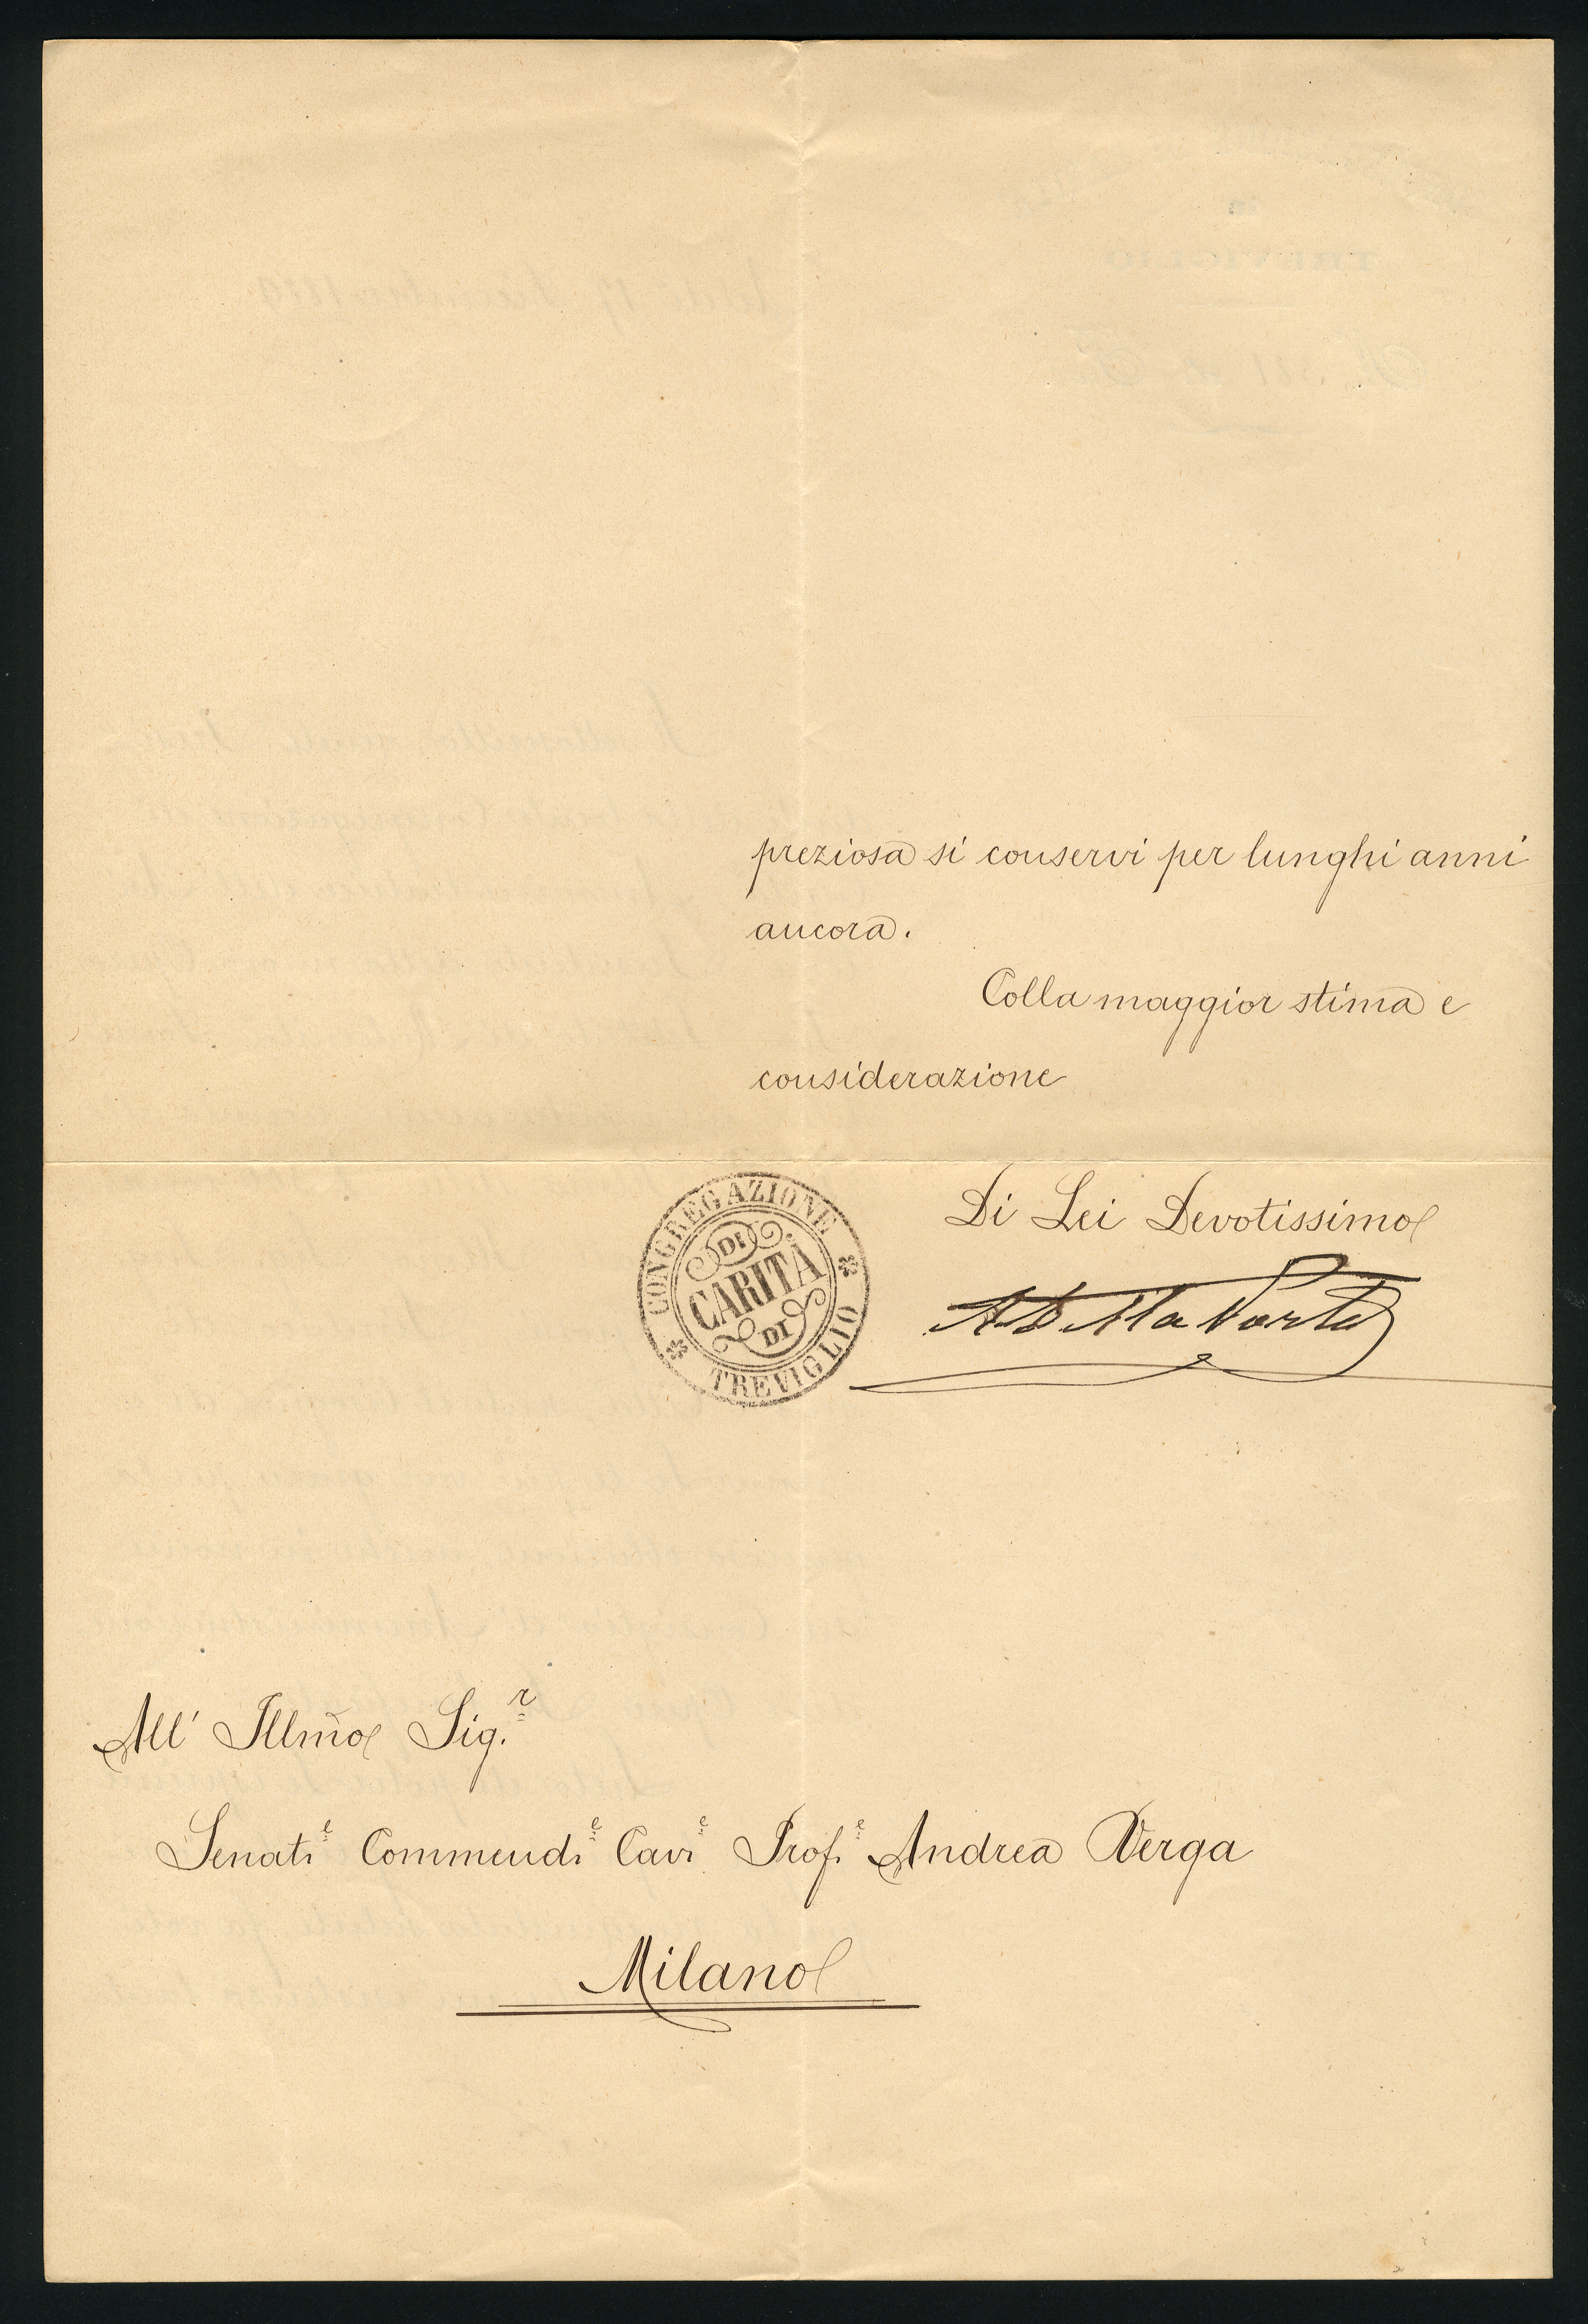 preziosa si conservi per lunghi anni
ancora.
Colla maggior stima e
considerazione
Di Lei Devotissimo
CONGREGAZIONE
DI
CARITÀ
DI
TREVIGLIO
All' Illmo Sig.r
Senate Commende Cave Prof.e Andrea Verga
Milano